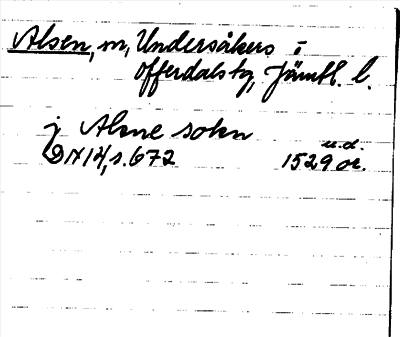 Alsen, m, Undersåkers i
Offerdals tg, Jämtl. l.
j Alsne sokn
u.d.
DN 14, s. 672 1529 or.